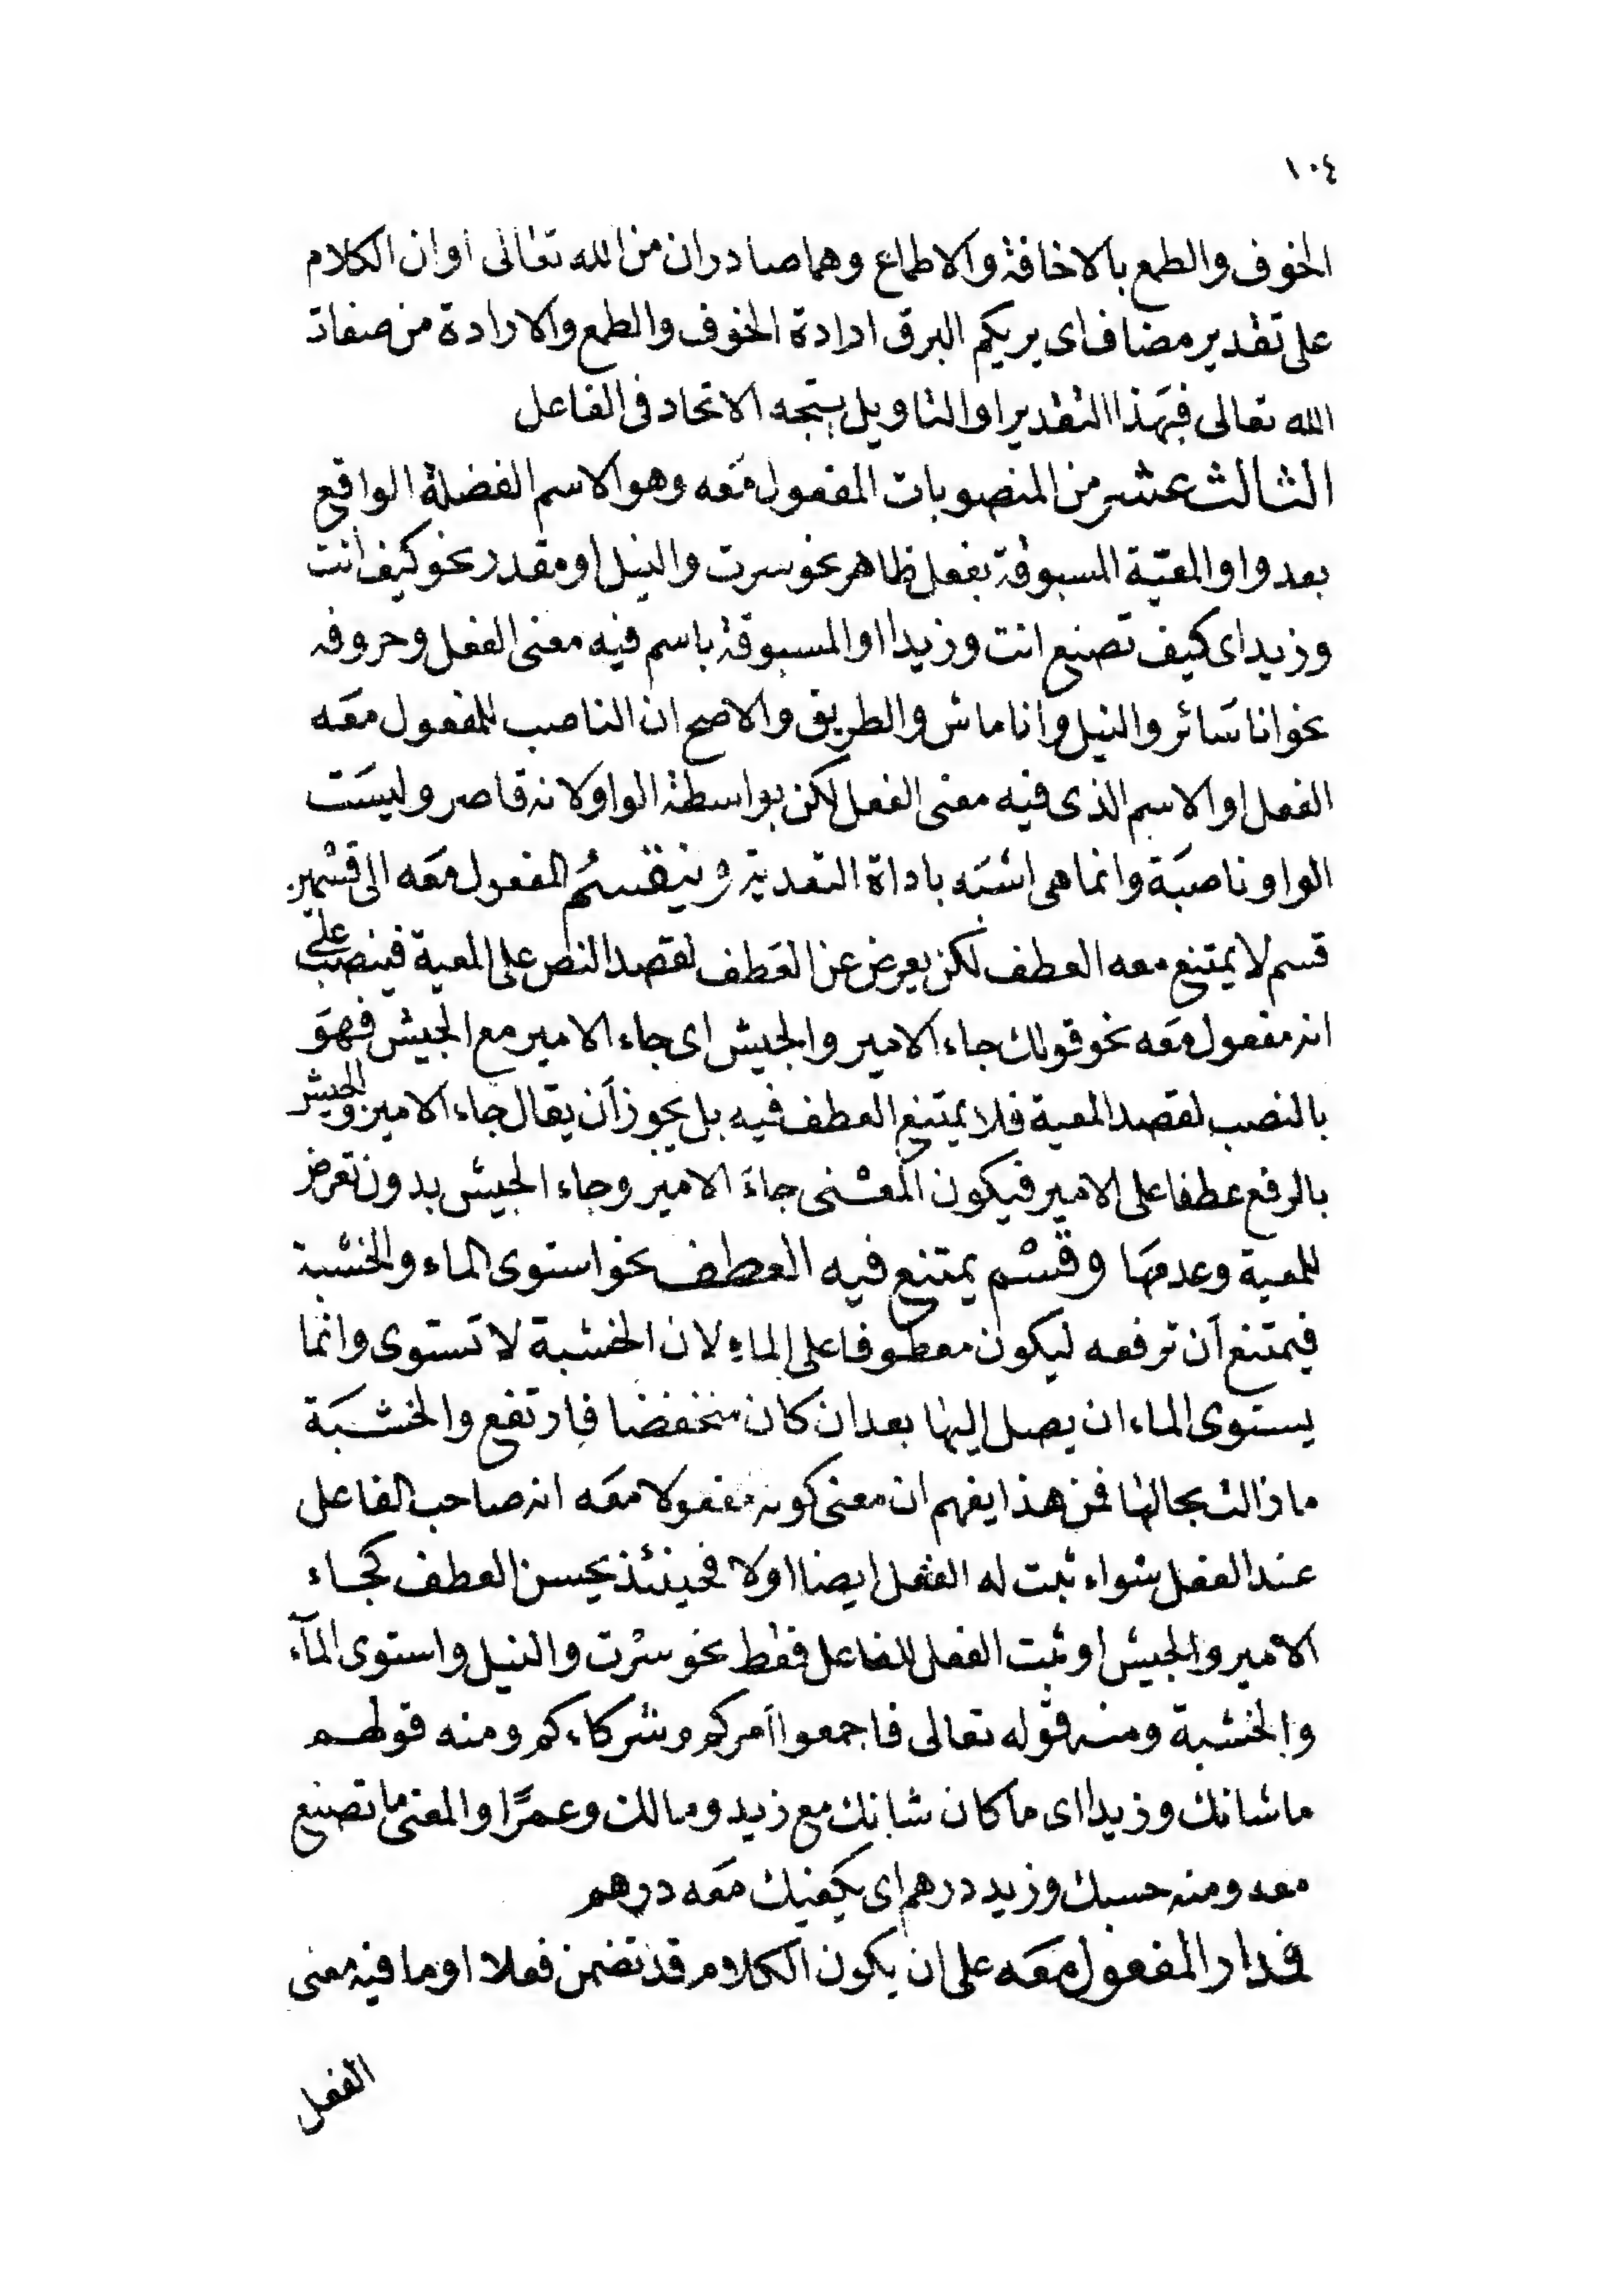 ١٠٤
الخوف والطمع بالاخافة والاطماع وهما صادران من الله تعالى اوان الكلام
على تقدير مضاف اى يريكم البرق ارادة الخوف والطمع والارادة من صفات
الله تعالى فبهذا التقدير او التاويل يتجه الاتحاد فى الفاعل
الثالث عشر من المنصوبات المفعول معه وهو الاسم الفضلة الواقع
بعد واو المعية المسبوقة بفعل ظاهر نحو سرت والنيل او مقدر نحو كيف انت
وزيدا اى كيف تصنع انت وزيدا او المسبوقة باسم فيه معنى الفعل وحروفه
نحو انا سائر والنيل وانا ماش والطريق والاصح ان الناصب للمفعول معه
الفعل او الاسم الذى فيه معنى الفعل لكن بواسطة الواو لانه قاصر وليست
الواو ناصبة وانما هى اشبه باداة التعدية وينقسم المفعول معه الى قسمين
قسم لا يمتنع معه العطف لكن يعرض عن العطف لقصد النص على المعية فينصب على
انه مفعول معه نحو قولك جاء الامير والجيش اى جاء الامير مع الجيش فهو
بالنصب لقصد المعية فلا يمتنع العطف فيه بل يجوز أن يقال جاء الامير والجيش
بالرفع عطفا على الامير فيكون المعنى جاء الامير وجاء الجيش بدون تعرض
للمعية وعدمها وقسم يمتنع فيه العطف نحو استوى الماء والخشبة
فيمتنع أن ترفعه ليكون معطوفا على الماء لان الخشبة لا تستوى وانما
يستوى الماء ان يصل اليها بعد ان كان منخفضا فارتفع والخشبة
ما زالت بحالها فمن هذا يفهم ان معنى كونه مفعولا معه انه صاحب الفاعل
عند الفعل سواء ثبت له الفعل ايضا اولا فحينئذ يحسن العطف كجاء
الامير والجيش او ثبت الفعل للفاعل فقط نحو سرت والنيل واستوى المآء
والخشبة ومنه قوله تعالى فاجمعوا أمركم وشركاءكم ومنه قولهم
ما شانك وزيدا اى ما كان شانك مع زيد ومالك وعمرًا والمعنى ما تصنع
معه ومنه حسبك وزيد درهم اى يكفيك معه درهم
فمدار المفعول معه على ان يكون الكلام قد تضمن فعلا او ما فيه معنى
الفعل